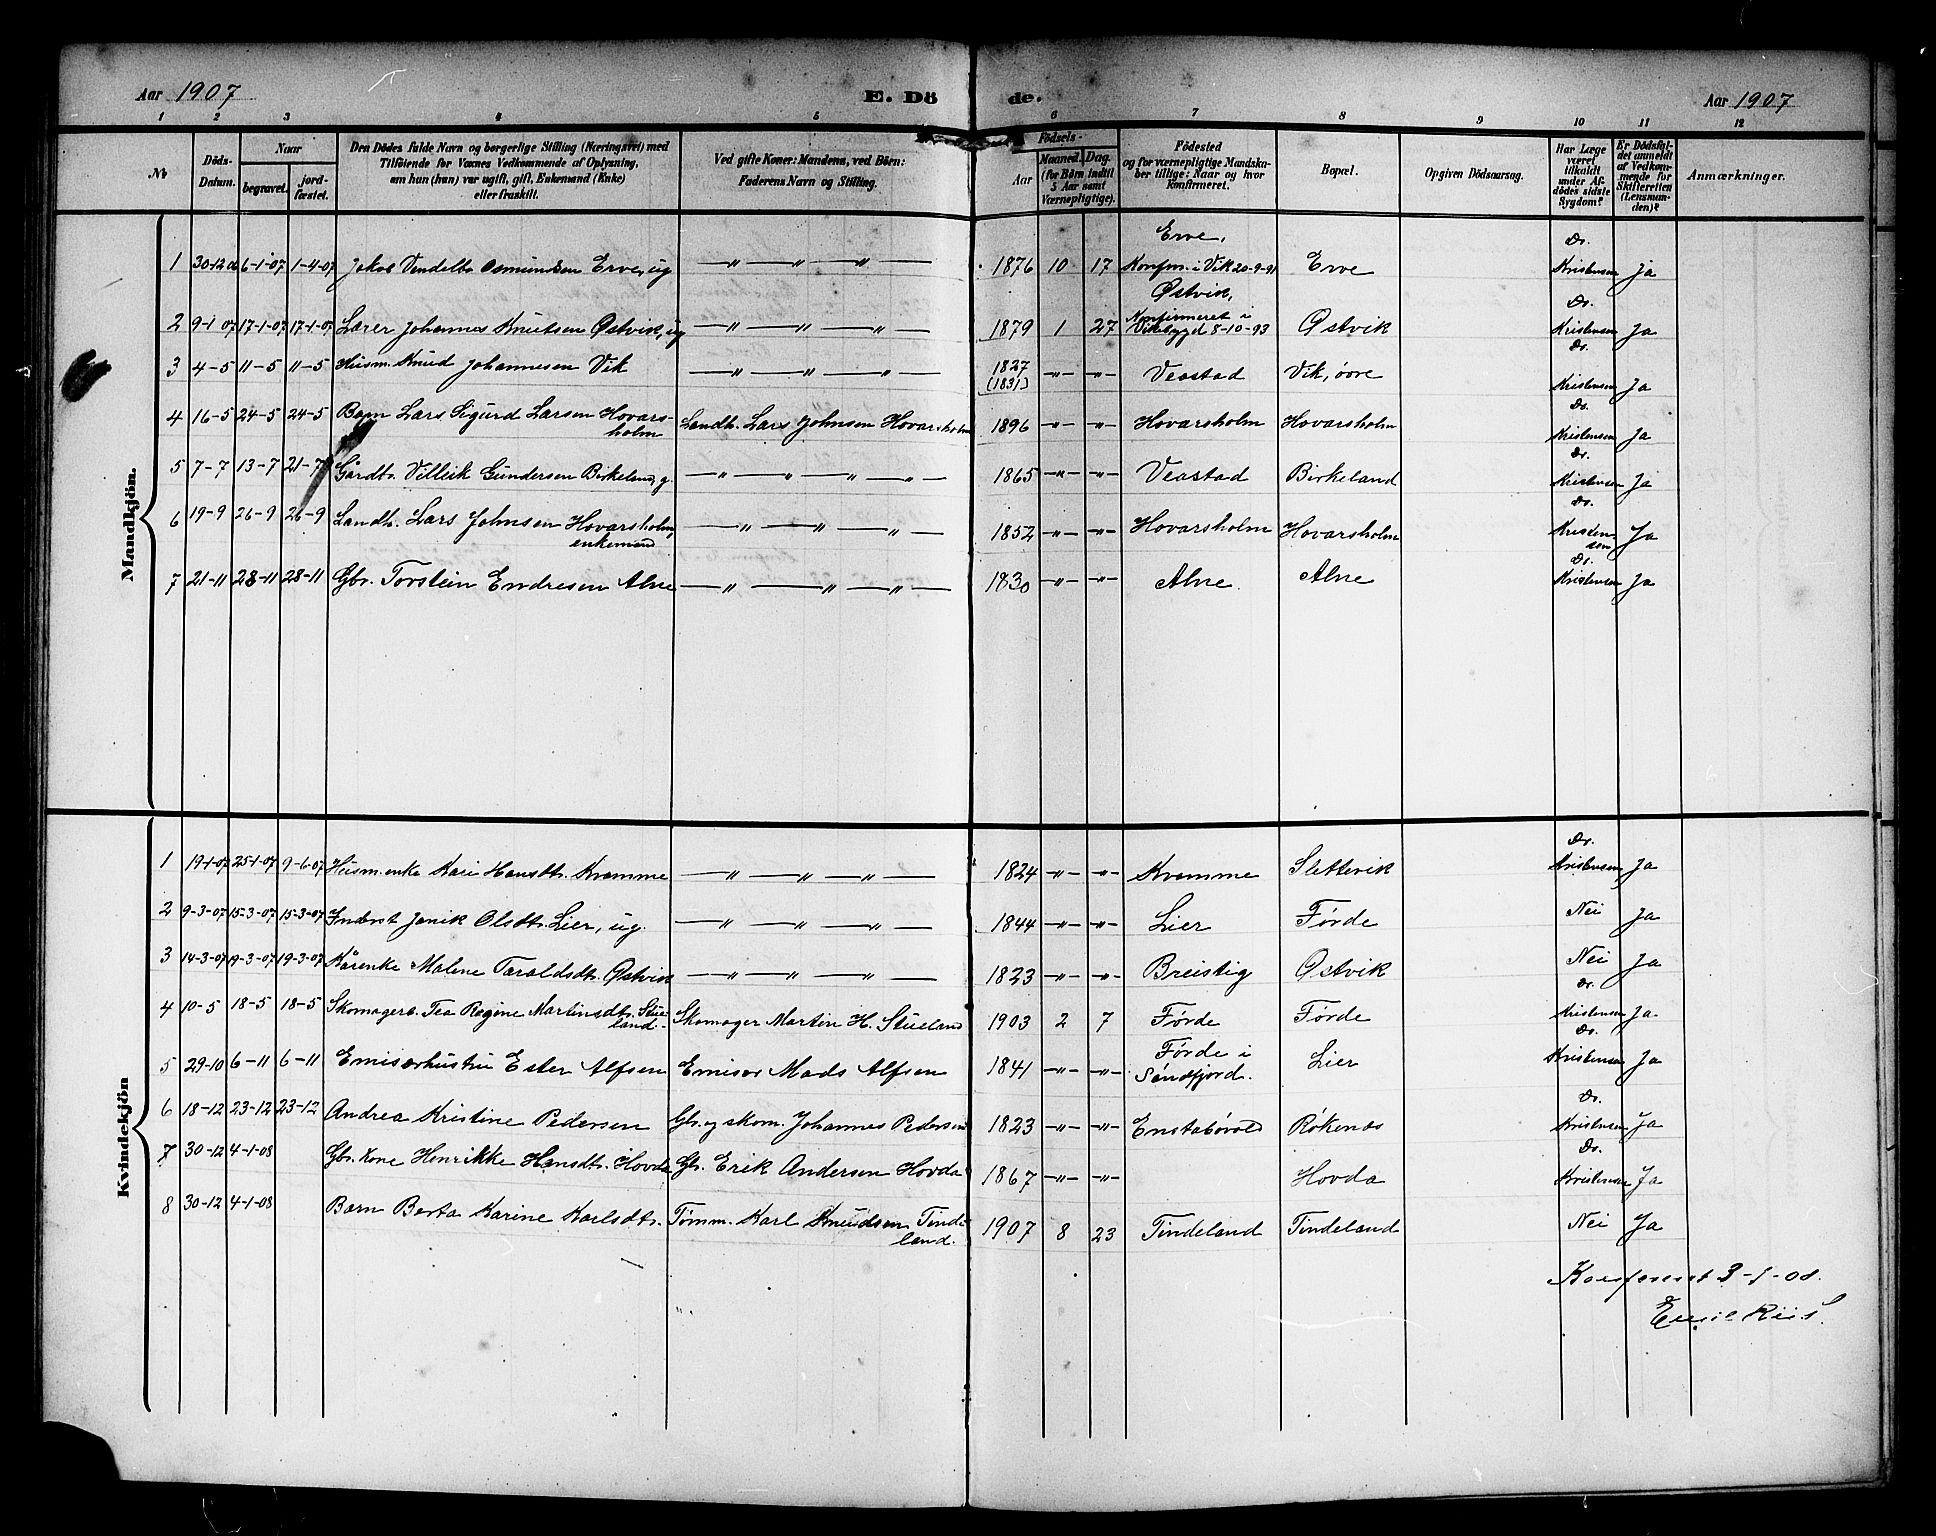 Aar 1907 E. Dö de. Aar 1907
1 2 3 4 5 6 7 8 9 10 11 12
No
Döds-Datum.
Naar
begravet.
jord-fæstet.
Den Dödes fulde Navn og borgerlige Stilling (Næringsvei) med
Tilföiende for Voxnes Vedkommende af Oplysning,
om han (hun) var ugift, gift, Enkemand (Enke)
eller fraskilt.
Ved gifte Koner: Mandens, ved Börn:
Faderens Navn og Stilling.
Födsels-
Aar
Maaned. Dag.
(for Börn indtil
5 Aar samt
Værnepligtige).
Födested
og for værnepligtige Mandska-
ber tillige: Naar og hvor
Konfirmeret.
Bopæl.
Opgiven Dödsaarsag.
Har Læge
været
tilkaldt
under Af-
dödes sidste
Sygdom?
Er Dödsfal-
det anmeldt
af Vedkom-
mende for
Skifteretten
(Lensman-
den)?
Anmærkninger.
Mandkjön.
1 30-12 06 6-1-07 1-4-07 Jakob Vendelbo Osmundsen Erve, ug —„—„—„— 1876 10 17 Erve, Konfirm. i Vik 20-9-91 Erve Dr. Kristensen Ja
2 9-1 07 17-1-07 17-1-07 Lærer Johannes Knutsen Østvik, ug —„—„—„— 1879 1 27 Østvik, Konfirmeret i Vikebygd 8-10-93 Østvik Dr. Kristensen Ja
3 4-5 11-5 11-5 Husm. Knud Johannesen Vik —„—„—„— 1827 (1831) -„- -„- Veastad Vik, øvre Dr. Kristensen Ja
4 16-5 24-5 24-5 Barn Lars Sigurd Larsen Hovars-holm Landh. Lars Johnsen Hovarsholm 1896 -„- -„- Hovarsholm Hovarsholm Dr. Kristensen Ja
5 7-7 13-7 21-7 Gårdbr. Villeik Gundersen Birkeland, g. —„—„—„—„— 1865 -„- -„- Veastad Birkeland Dr. Kristensen Ja
6 19-9 26-9 26-9 Landh. Lars Johnsen Hovarsholm, enkemand —„—„—„— 1852 -„- -„- Hovarsholm Hovarsholm Dr. Kristen-sen Ja
7 21-11 28-11 28-11 Gbr. Torstein Endresen Alne —„—„—„— 1830 -„- -„- Alne. Alne Dr. Kristensen Ja
Kvindekjön
1 19-1-07 25-1-07 9-6-07 Husm.enke Kari Hansdtr. Kromme —„—„—„— 1824 -„- -„- Kromme Slettevik Dr. Kristensen Ja
2 9-3-07 15-3-07 15-3-07 Inderst Janik Olsdtr. Lier, ug. —„—„—„— 1844 -„- -„- Lier Førde Nei Ja
3 14-3-07 19-3-07 19-3-07 Kårenke Malene Taraldsdtr. Østvik —„—„—„— 1823 -„- -„- Breistig Østvik Nei Ja
4 10-5 18-5 18-5 Skomagerb. Tea Regine Martinsdtr. Stue-land. Skomager Martin H. Stueland 1903 2 7 Førde Førde Dr. Kristensen Ja
5 29-10 6-11 6-11 Emisærhustru Ester Alfsen Emisær Mads Alfsen 1841 -„- -„- Førde i Søndfjord. Lier Dr. Kristensen Ja
6 18-12 23-12 23-12 Andrea Kristine Pedersen Gbr. og skom. Johannes Pedersen 1823 -„- -„- Enstabøvold Røkenes Dr. Kristensen Ja
7 30-12 4-1-08 Gbr. Kone Henrikke Hansdtr. Hovda Gbr. Erik Andersen Hovda 1867 -„- -„- Hovda Dr. Kristensen Ja
8 30-12 4-1-08 Barn Berta Karine Karlsdtr. Tømm. Karl Knudsen Tinde-land. 1907 8 23 Tindeland Tindeland Nei Ja
3-1-08.
Emil Riis.